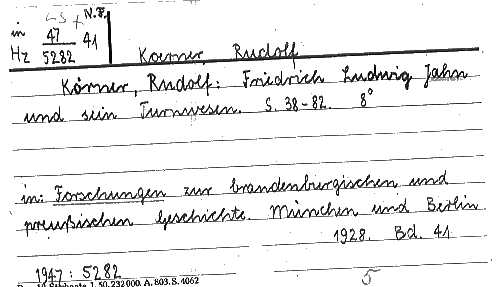 in GS + N.F.
Hz 47/5282 41
Koerner, Rudolf
Körner, Rudolf: Friedrich Ludwig Jahn
und sein Turnwesen. S. 38-82. 8°
in: Forschungen zur brandenburgischen und
preußischen Geschichte. München und Berlin
1928. Bd. 41
1947: 5282
5
1. 50. 232000. A. 803. S. 4062